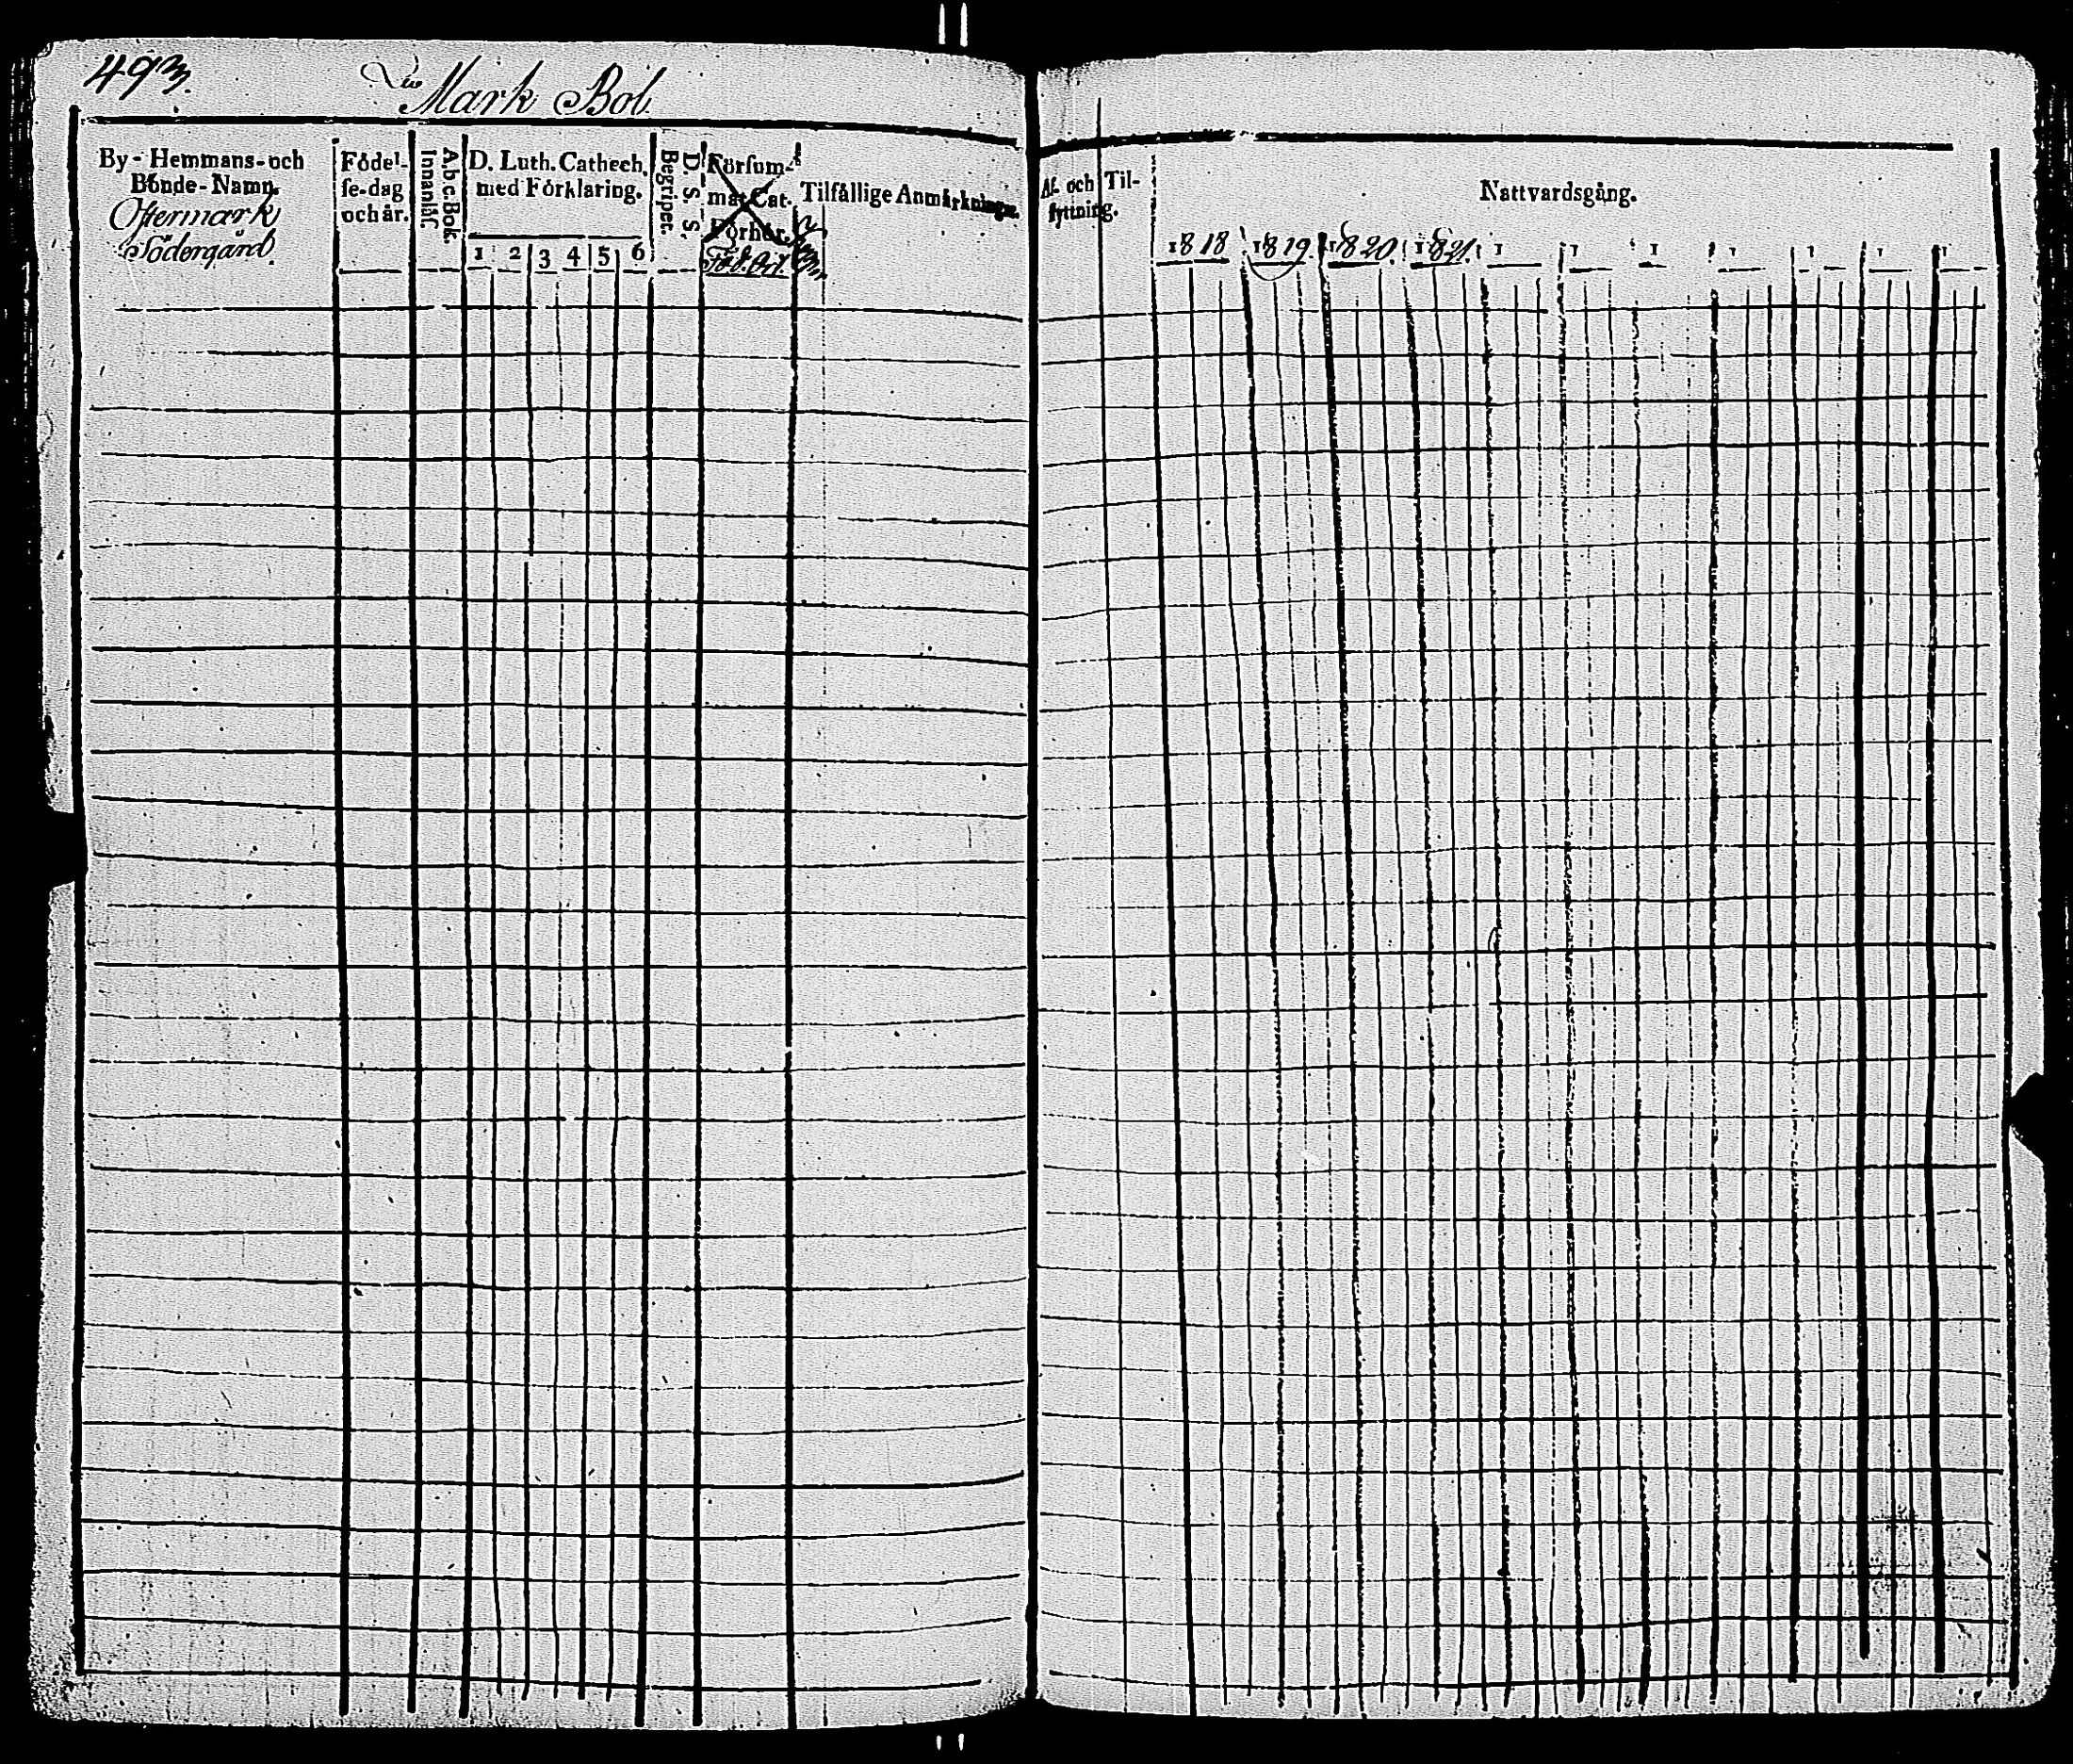 493.
Mark Bol.
By- Hemmans- och
Bönde- Namn.
Östermark
Södergård
Födel-
se-dag
och år.
A b c. Bok.
Innanläs.
D. Luth. Cathech.
med Förklaring.
1 2 3 4 5 6
D. S. S.
Begriper.
Försum-
mat Cat.
Förhör.
Föd. Ort.
Tilfällige Anmärkningar.
Af- och Til-
flyttning.
Nattvardsgång.
1818 1819. 1820. 1821. 1 1 1 1 1 1 1